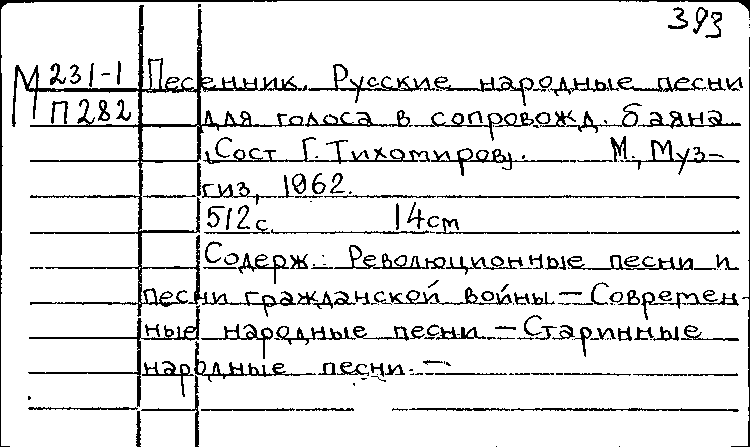 393
М 231-1 Песенник. Русские народные песни
П282 для голоса в сопровожд. баяна
[Сост Г. Тихомиров]. М., Муз-
гиз, 1962.
512с. 14см
Содерж.: Революционные песни и
песни гражданской войны — Современ-
ные народные песни — Старинные
народные песни. —